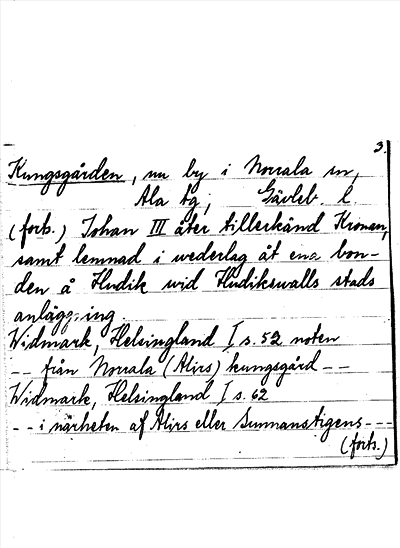 3.
Kungsgården, nu by i Norrala sn,
Ala tg, Gävleb. l.
(forts.) Johan III åter tillerkänd Kronan,
samt lemnad i wederlag åt ena bon-
den å Hudik wid Hudikswalls stads
anläggning.
Widmark, Helsingland I s. 52 noten
-- från Norrala (Alirs) kungsgård --
Widmark, Helsingland I s. 62
-- i närheten af Alirs eller Sunnanstigens ---
(forts.)